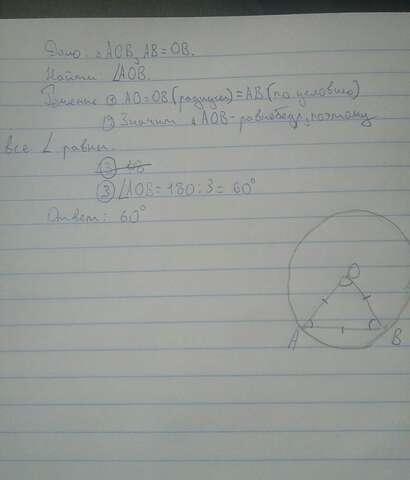 Дано: △AOB, AB=OB.
Найти: ∠AOB.
Решение ① AO=OB (радиусы)=AB (по условию)
② Значит △AOB-равнобедр, поэтому
все ∠ равны.
③∠AOB=180:3=60°
Ответ: 60°
O
A B